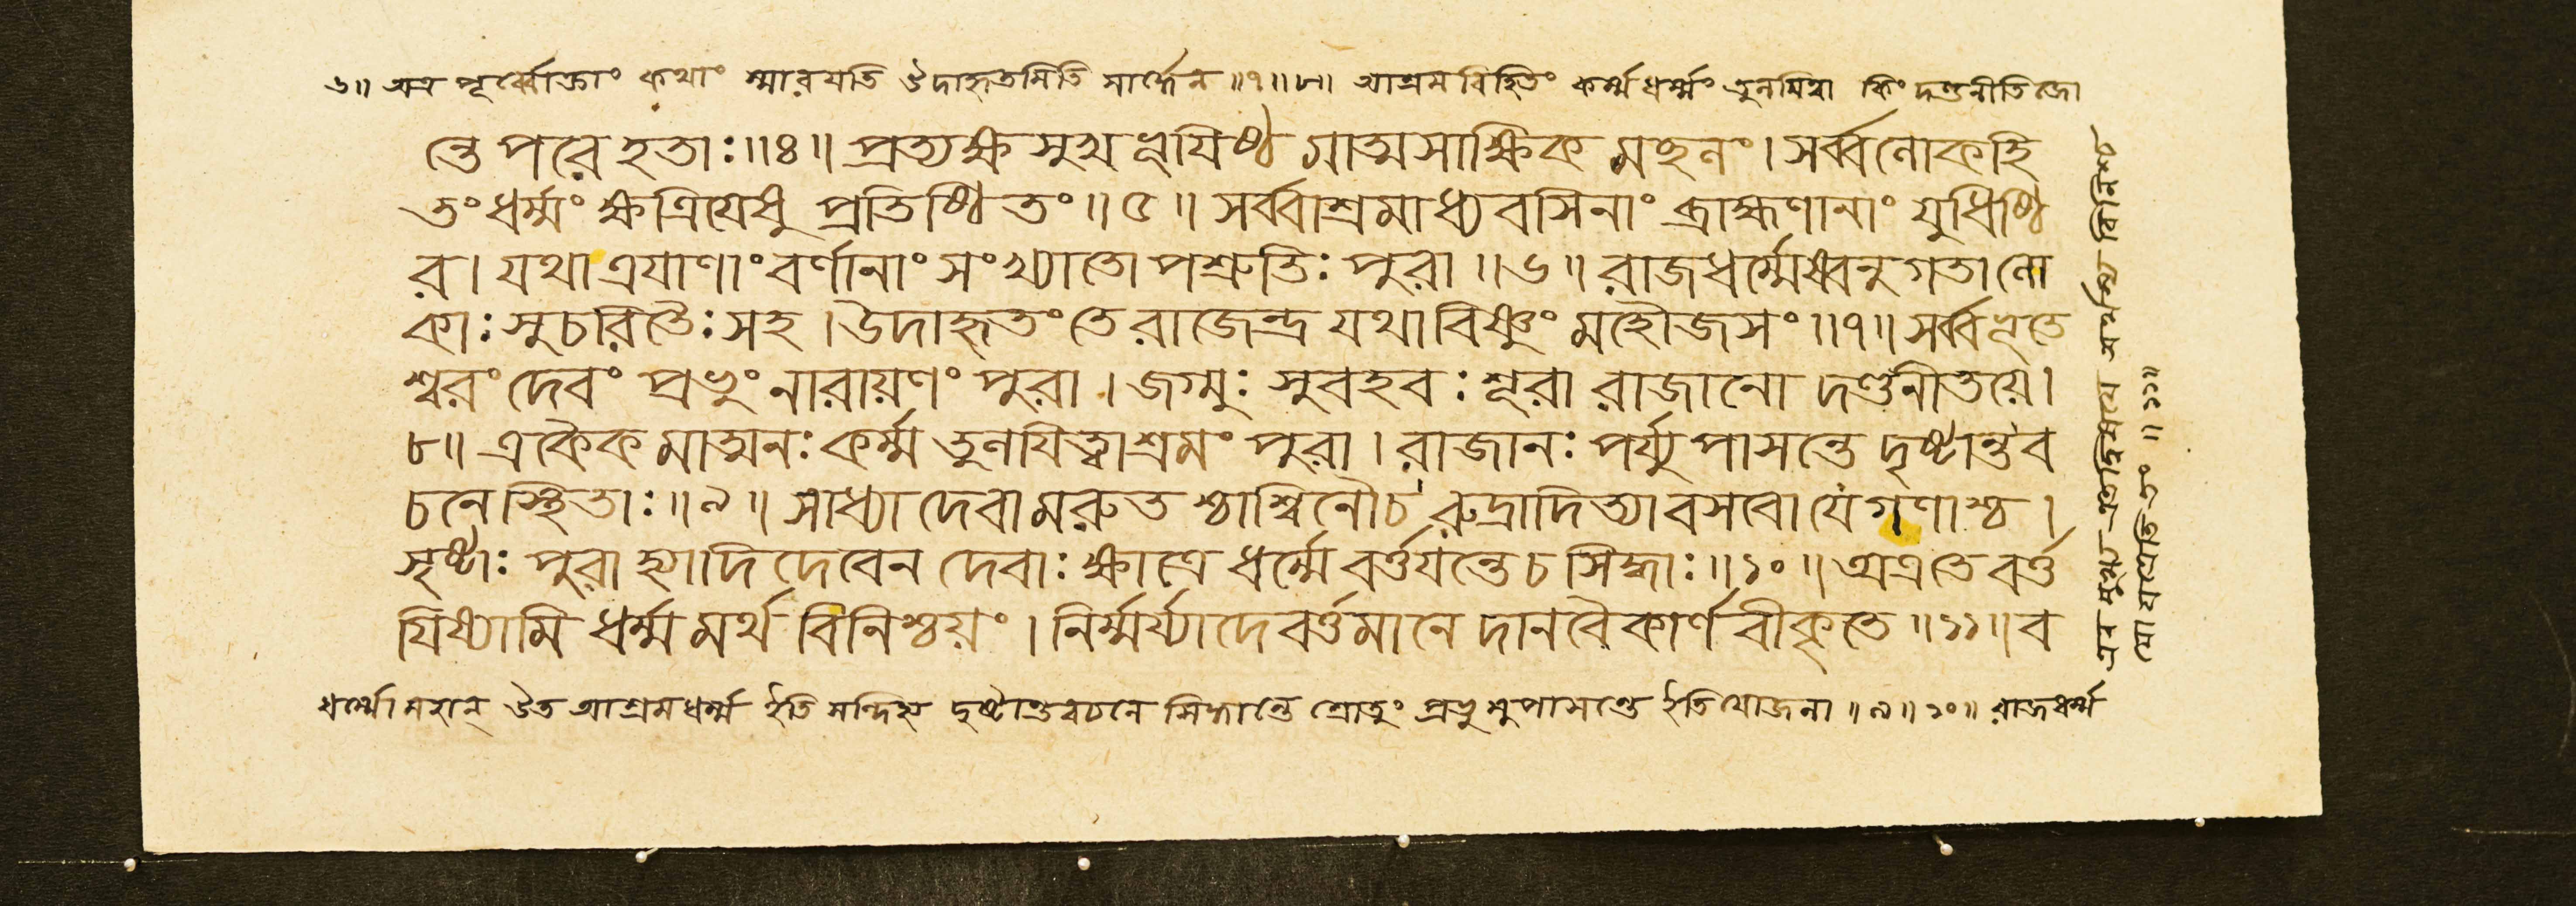 ৬॥ অত্র পূর্ব্বোক্তাং কথাং স্মারয়তি উদাহৃতমিতি সার্দ্ধেন ॥৭॥৮॥ আশ্রমবিহিতং কর্ম্মধর্ম্মং তুলয়িত্বা কিং দণ্ডনীতিজো
ন্তে পরে হতাঃ ॥৪॥ প্রত্যক্ষ সুখ ভূয়িষ্ঠ মাত্মসাক্ষিক মচ্ছলং । সর্ব্বলোকহি
তং ধর্ম্মং ক্ষত্রিয়েষু প্রতিষ্ঠিতং ॥ ৫ ॥ সর্ব্বাশ্রমাধ্যবসিনাং ব্রাহ্মণানাং যুধিষ্ঠি
র । যথা ত্রয়াণাং বর্ণানাং সংখ্যাতোপশ্রুতিঃ পুরা ॥ ৬ ॥ রাজধর্ম্মেষ্বনুগতা লো
কাঃ সুচরিতৈঃ সহ । উদাহৃতং তে রাজেন্দ্র যথা বিষ্ণুং মহৌজসং ॥৭॥ সর্ব্বভূতে
শ্বরং দেবং প্রভুং নারায়ণং পুরা । জগ্মুঃ সুবহবঃ শূরা রাজানো দণ্ডনীতয়ে ।
৮॥ একৈক মাত্মনঃ কর্ম্ম তুলয়িত্বাশ্রমং পুরা । রাজানঃ পর্য্যুপাসন্তে দৃষ্টান্তব
চনে স্থিতাঃ ॥ ৯ ॥ সাধ্যা দেবা মরুতশ্চাশ্বিনৌচ রুদ্রাদিত্যা বসবো যে গণাশ্চ ।
সৃষ্টাঃ পুরা হ্যাদিদেবেন দেবাঃ ক্ষাত্রে ধর্ম্মে বর্ত্তয়ন্তে চ সিদ্ধাঃ ॥ ১০ ॥ অত্র তে বর্ত্ত
য়িষ্যামি ধর্ম্ম মর্থ বিনিশ্চয়ং । নির্ম্মর্য্যাদে বর্ত্তমানে দানবৈকার্ণবীকৃতে ॥ ১১ ॥ ব
ধর্ম্মো মহান্ উত আশ্রমধর্ম্ম ইতি সন্দিহ্য দৃষ্টান্তবচনে সিদ্ধান্তে শ্রোতুং প্রভুমুপাসন্তে ইতি যোজনা ॥ ৯ ॥ ১০ ॥ রাজধর্ম্ম